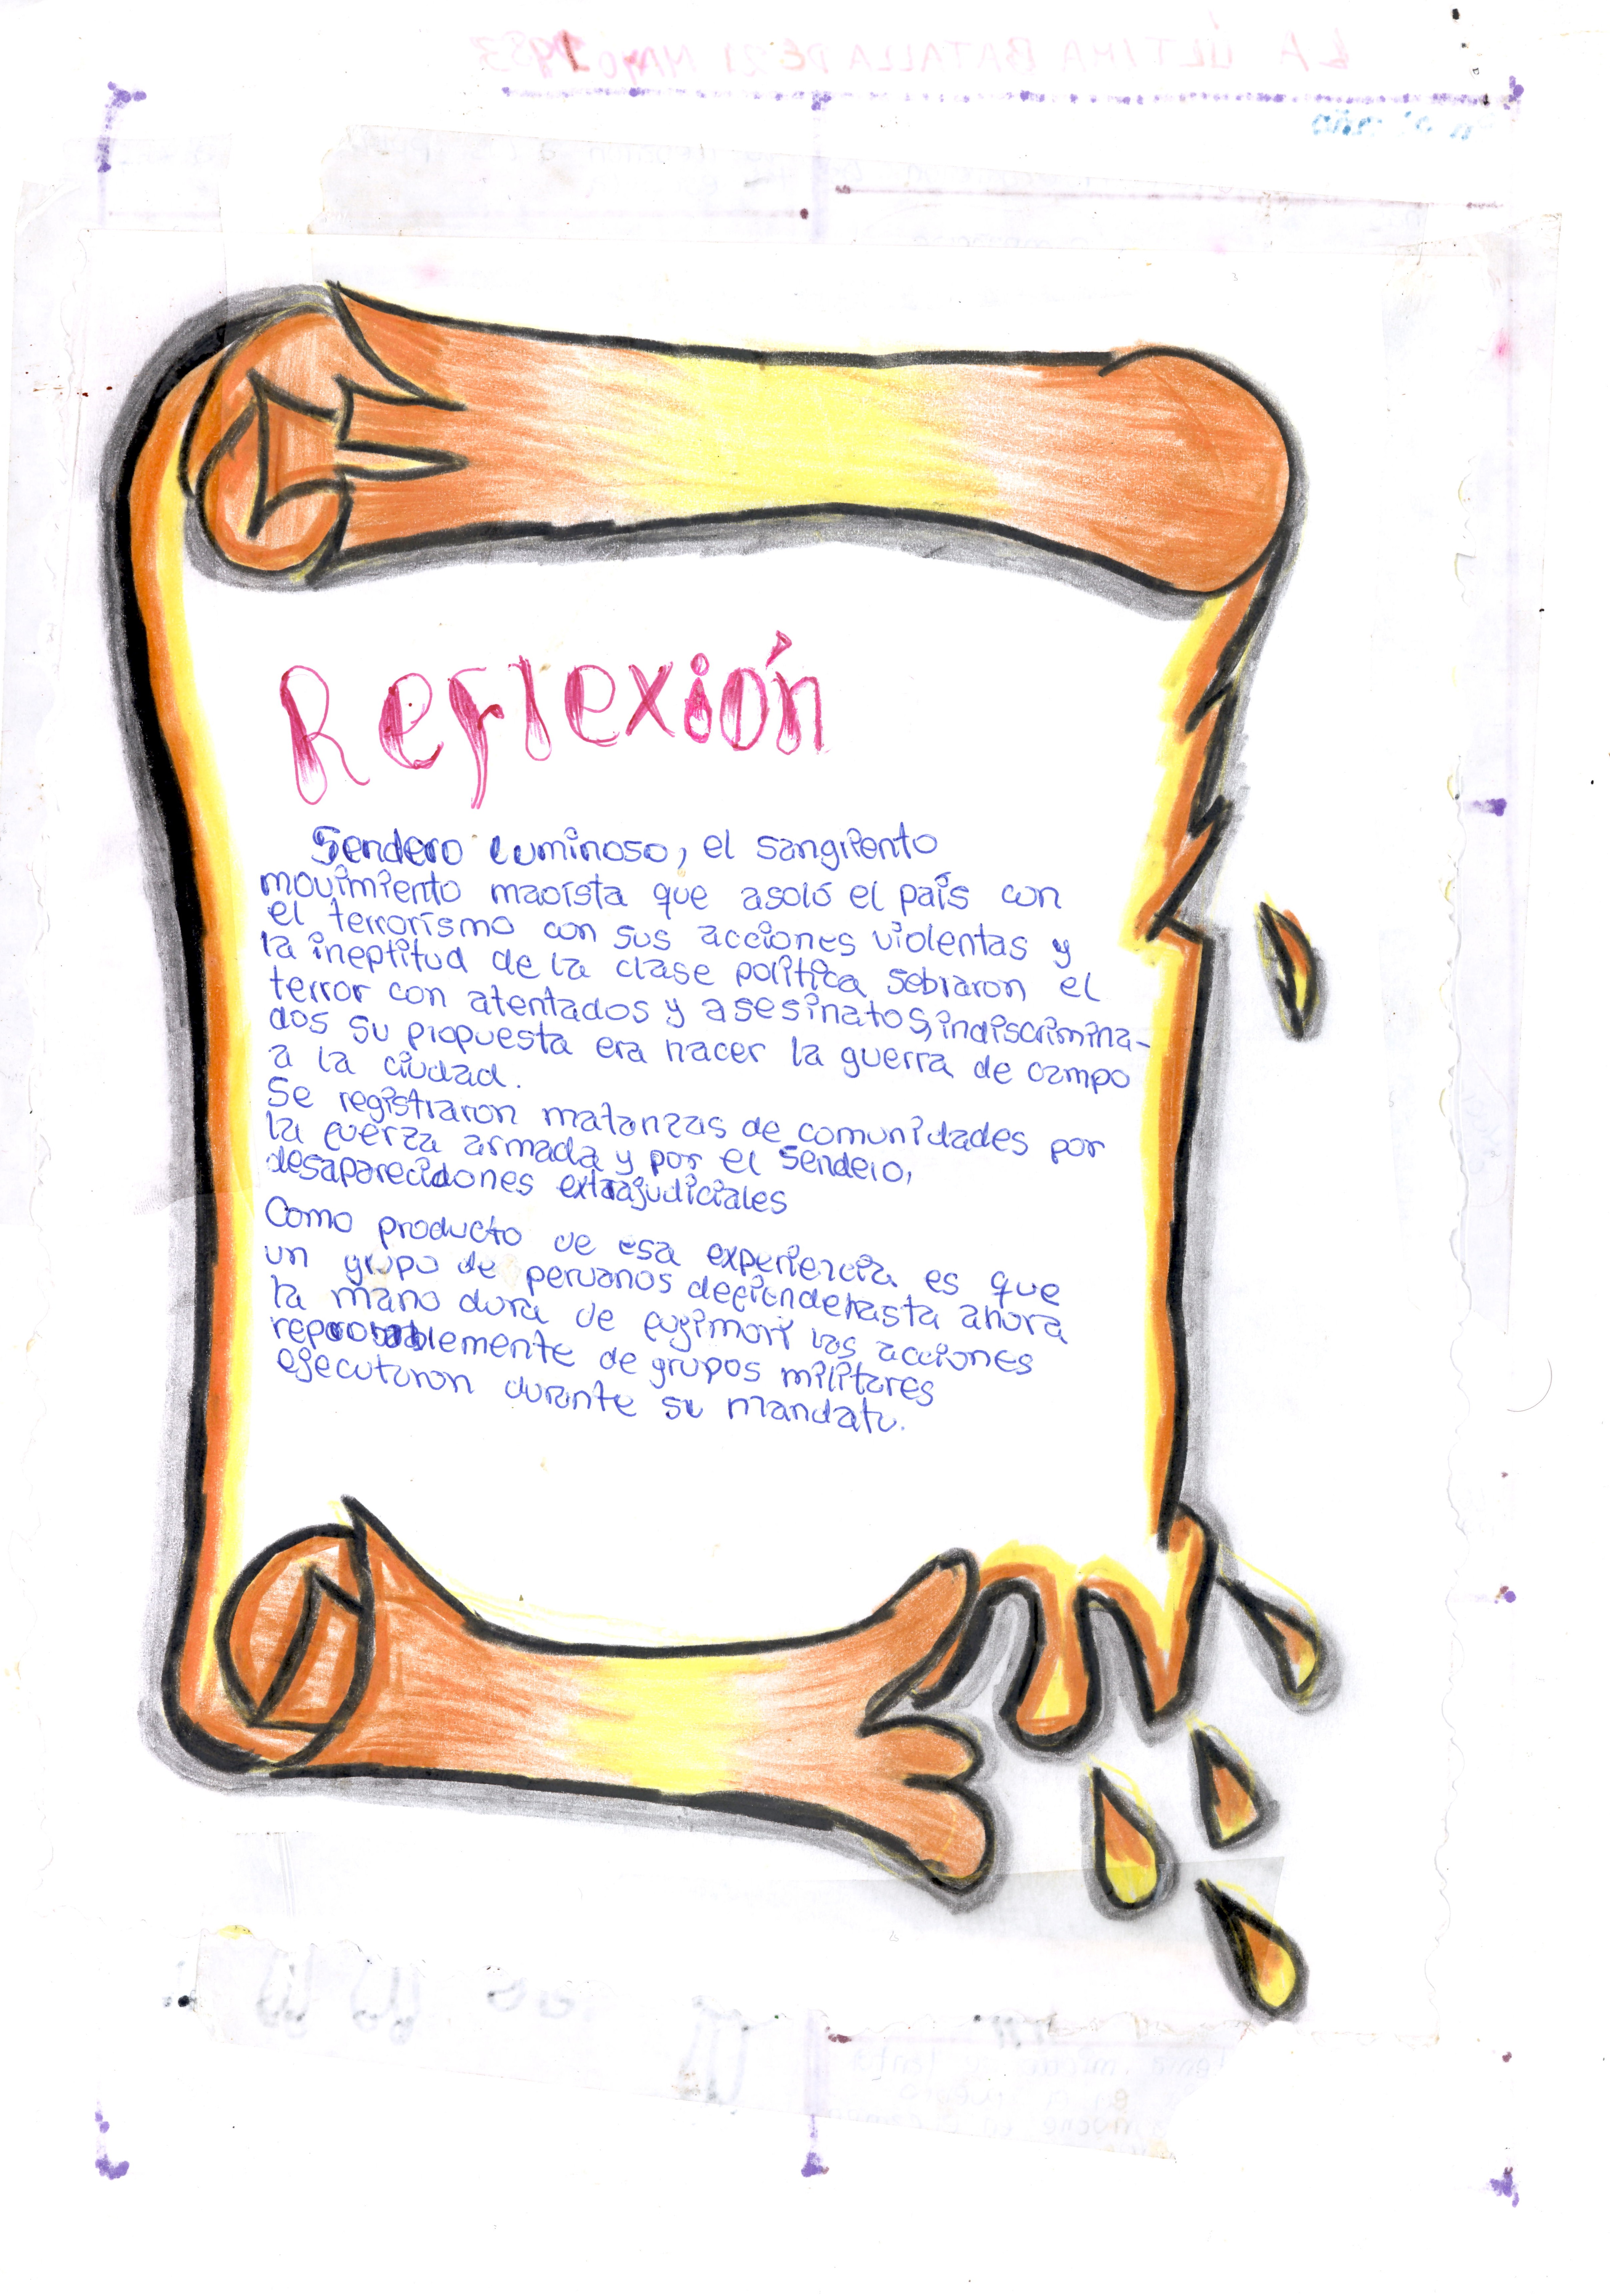 Reflexión
Sendero Luminoso, el sangriento
movimiento maoísta que asoló el país con
el terrorismo con sus acciones violentas y
la ineptitud de la clase política sebraron el
terror con atentados y asesinatos, indiscrimina-
dos su propuesta era hacer la guerra de campo
a la ciudad.
Se registraron matanzas de comunidades por
la fuerza armada y por el Sendero,
desaparecidones extrajudiciales
Como producto de esa experiencia es que
un grupo de peruanos defiende hasta ahora
la mano dura de fujimori las acciones
reprobablemente de grupos militares
ejecutaron durante su mandato.